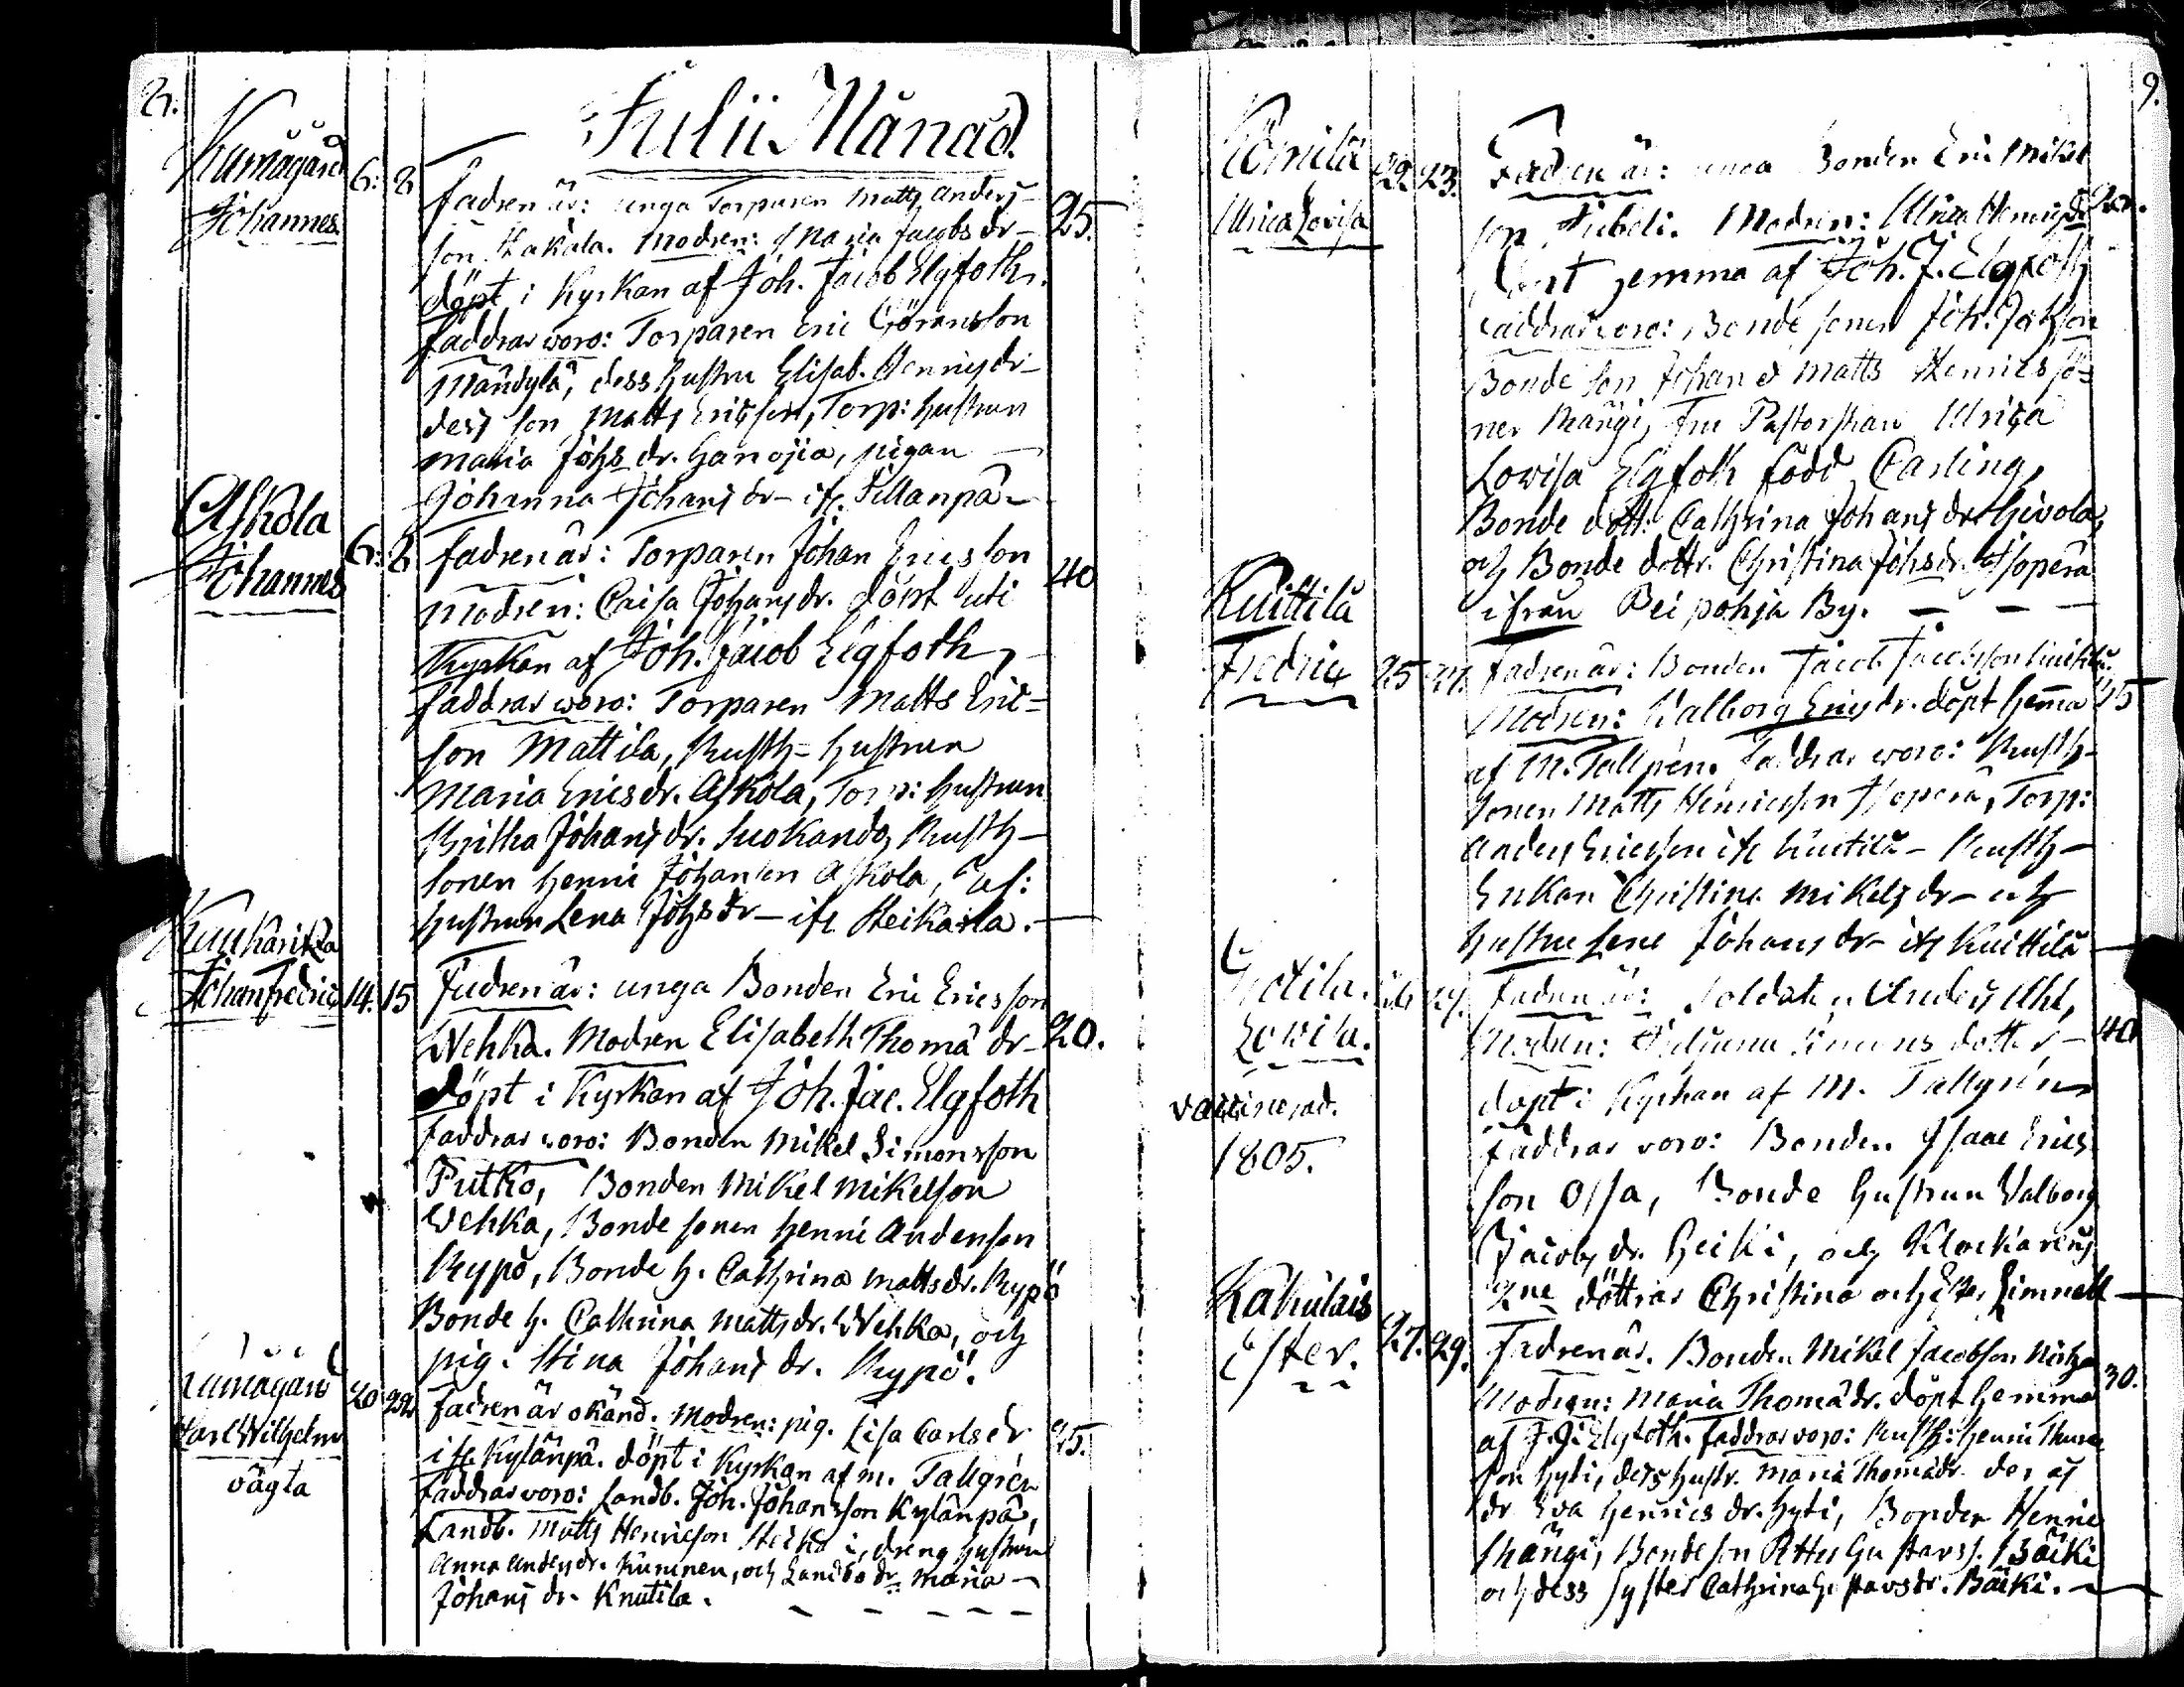 Julii Månad.
Kumågård 6. 8.
Johannes
fadren är: unga Torparen Matts Anders-
son Hakala. Modren: Maria Jacobs dr - 25.
döpt i Kyrkan af Joh. Jacob Elgfoth.
faddrar woro: Torparen Eric Göransson
Mändylä, dess hustru Elisab. Henrics dr-
des son Matts Ericsson, Torp: hustrun
Maria Johs dr. Hanoja, pigan
Johanna Johans dr - ifr. Sillanpä
Askola
Johannes 6. 8.
fadren är: Torparen Johan Ericsson 40
Modren: Caisa Johans dr. döpt uti
Kyrkan af Joh. Jacob Elgfoth,
faddrar woro: Torparen Matts Eric=
son Mattila, Rusth= hustrun
Maria Erics dr. Askola, Torp: hustrun
Britha Johans dr. Suokando, Rusth-
sonen Henric Johanson Askola,
hustrun Lena Johs dr - ifr. Heikarla.
Johan Fredric 14. 15
Fadren är: unga Bonden Eric Ericsson
Wehka. Modren Elisabeth Thomä dr- 20.
döpt i Kyrkan af Joh. Jac. Elgfoth
faddrar woro: Bonden Mikel Simonsson
Putko, Bonden Mikel Mikelson
Wehka, Bonde sonen Henric Anderson
Rypö, Bonde h. Cathrina Matts dr. Rypö
Bonde h. Cathrina Matts dr. Wehka, och
pig. Stina Johans dr. Rypö.
Kumågård 20 22
Carl Wilhelm
oägta
Fadren är okänd. Modren: pig. Lisa Carls dr 25.
ifr. Kylänpä. döpt i Kyrkan af M. Tallgrén
Faddrar woro: Landb. Joh. Johansson Kylänpä,
Landb. Matts Henricson, dreng hustrun
Anna Anders dr. Kuninen, och Landbo dr. Maria
Johans dr. Knutila.
9.
Kömilä 22. 23.
Ulrica Lovisa
Fadren är: unga Bonden Eric Mikel
son. Modren: Ulrica Henrics dr
döpt hemma af Joh. J. Elgfoth
faddrar woro: Bonde sonen Joh. Jakson
Bonde son Johan & Matts Henrics sö=
ner Knängi, Fru Pastorskan Ulrica
Lovisa Elgfoth född Carling,
Bonde dott: Cathrina Johans dr. Hivola,
och Bonde dottr. Christina Johs dr. Isoperä
ifrån Peipohja By.
Kuittila
Fredric 25 27.
fadren är: Bonden Jacob Jacobsson Kuittila.
Modren: Walborg Erics dr. döpt hema 35
af M. Tallgrén. Faddrar woro: Rusth-
sonen Matts Henricsson Isoperä, Torp:
Anders Ericsson ifr Kuittila - Rusth-
Enkan Christina Mikels dr - och
hustru Lena Johans dr - ifr Kuittila
Lovisa.
vaccinerad.
1805.
Fadren är: Soldaten Anders Uhl, 40
Modren: Simons dotter -
döpt i Kyrkan af M. Tallgrén
faddrar woro: Bonden Isaac Erics
son Ossa, Bonde hustrun Valborg
Jacobs dr. Heiki, och Klockarens
2ne döttrar Christina och Ester Limnell
Kakulais
Ester. 27. 29.
Fadren är. Bonden Mikel Jacobson
Modren: Maria Thomä dr. döpt hemma 30.
af J. J. Elgfoth. faddrar woro: Rusth: Henric Thomæ
son Hyti, dess hustr. Maria Thomä dr. deras
dr Eva Henrics dr. Hyti, Bonden Henric
Knängi, Bonde son Petter Gustavss. Bäcki
och dess syster Cathrina Gustavs dr. Bäcki.